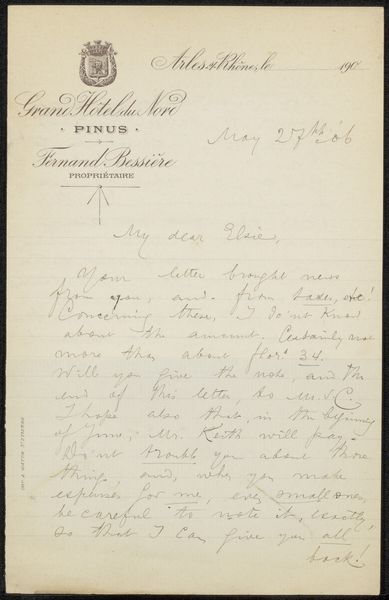 Arles s/ Rhône, le 190
Grand Hôtel du Nord
· PINUS ·
Fernand Bessière
PROPRIÉTAIRE
May 27th 06
My dear Elsie,
Your letter brought news
from you, and from taxes, etc!
Concerning these, I do'nt know
about the amount. Certainly not
more than about flor. 34.
Will you give the note, and the
end of this letter, to Mr. v. C.
I hope also that, in the beginning
of June, Mr. Keith will pay.
Do'nt trouble you about those
things, and, when you make
expenses for me, even small ones,
be careful to note it, exactly,
so that I can give you all
back!